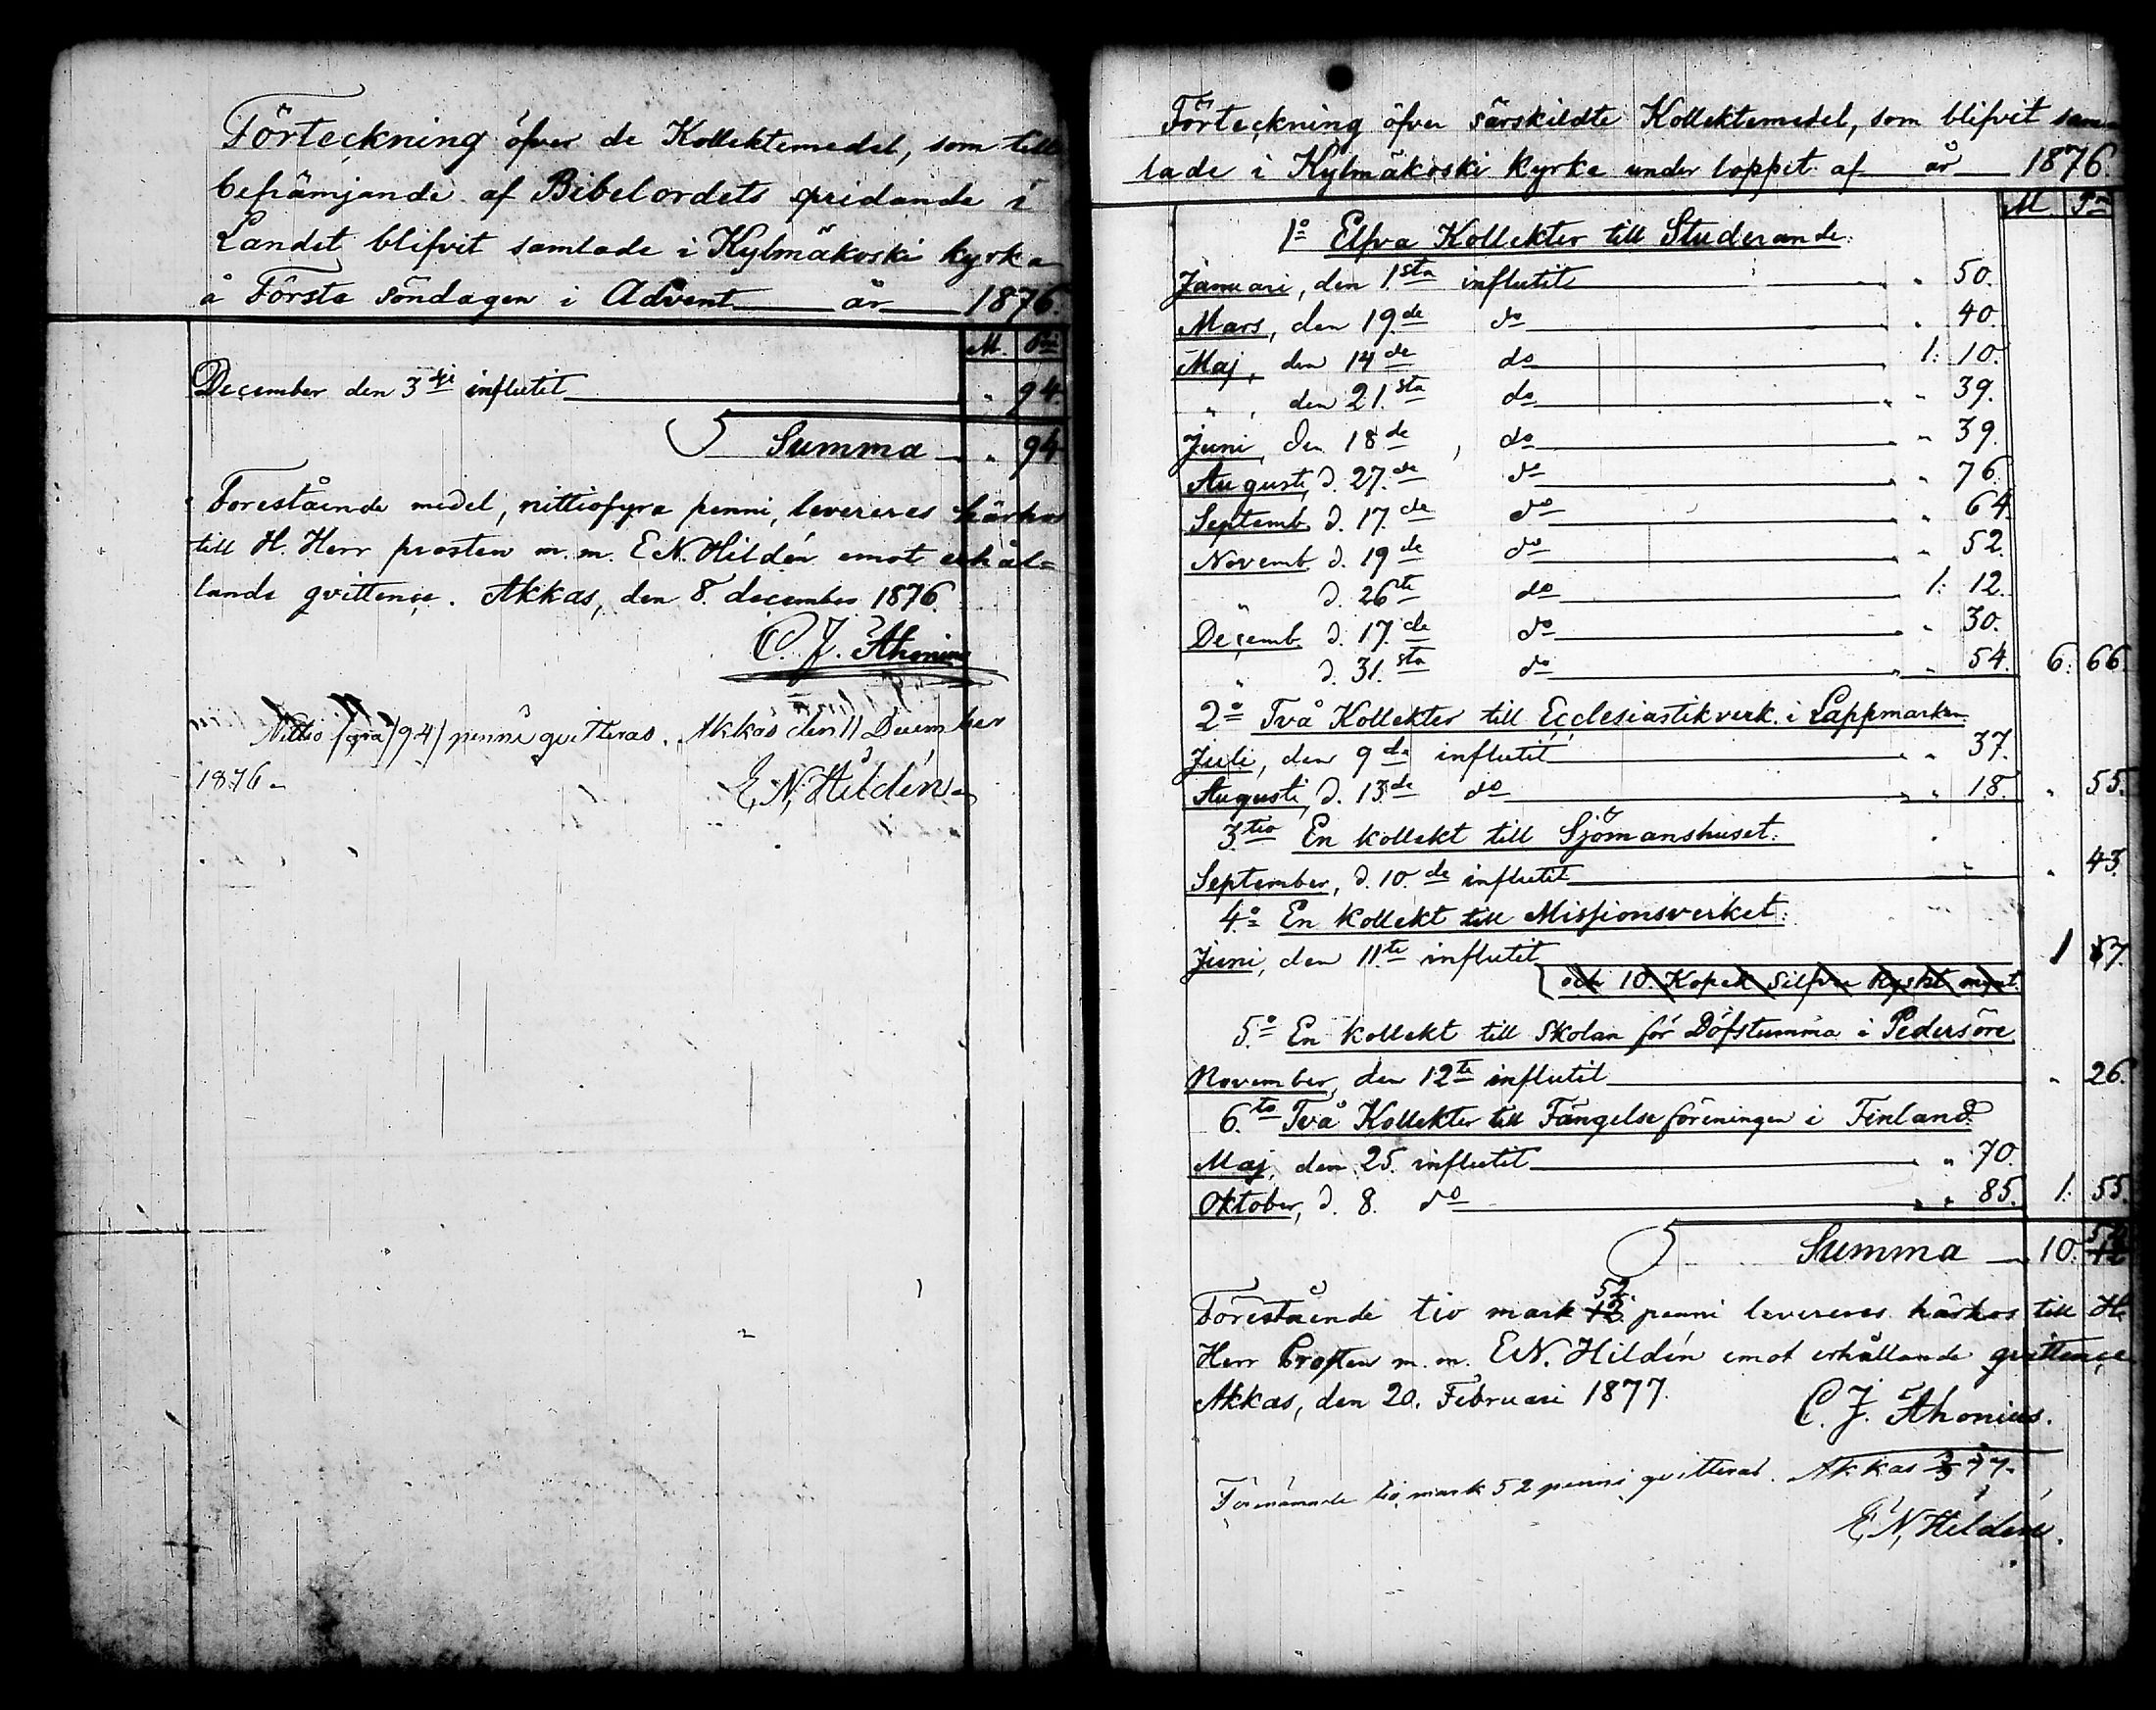 Förteckning öfver de Kollektemedel, som till
befrämjande af Bibelordets spridande i
Landet blifvit samlade i Kylmäkoski kyrka
å Första söndagen i Advent år 1876.
M. Pi
December den 3dje influtit " 94.
Summa " 94
Forestående medel, nittiofyra penni, levereres härhos
till H. Herr prosten m.m. E.N. Hildén emot erhål=
lande qvittence. Akkas, den 8. december 1876.
C. J. Ahonius
Nittio fyra (94) penni qvitteras. Akkas den 11 December
1876.
E. N. Hildén.
Förteckning öfver särskildte Kollektemedel, som blifvit sam
lade i Kylmäkoski kyrka under loppet af år 1876.
M. Pi
1o Elfva Kollekter till Studerande:
Januari, den 1sta influtit " 50.
Mars, den 19de do " 40.
Maj, den 14de do 1: 10.
" , den 21.sta do " 39.
Juni, den 18de, do " 39.
Augusti, d. 27.de do " 76.
Septemb. d. 17.de do " 64.
Novemb. d. 19de do " 52.
" d. 26te do 1: 12.
Decemb. d. 17.de do " 30.
" d. 31.sta do " 54. 6: 66.
2o Två Kollekter till Ecclesiastikverk. i Lappmarken.
Juli, den 9de influtit " 37.
Augusti, d. 13de do " 18. " 55.
3.tio En kollekt till Sjömanshuset:
September, d. 10.de influtit " 43.
4.o En kollekt till Missionsverket:
Juni, den 11te influtit 1 7.
och 10 Kopek Silfver Ryskt mynt.
5.o En kollekt till skolan för Döfstumma i Pedersöre.
November, den 12te influtit " 26.
6.to Två Kollekter till Fängelseföreningen i Finland.
Maj, den 25. influtit " 70.
Oktober, d. 8. do " 85. 1: 55.
Summa 10: 52 12
52.
Förestående tio mark 12 penni levereres härhos till H.
Herr Prosten m.m. E.N. Hildén emot erhållande qvittence
Akkas, den 20. Februari 1877.
C. J. Ahonius.
Förenämnde tio mark 52 penni qvitteras. Akkas 77.
E. N. Hildén.